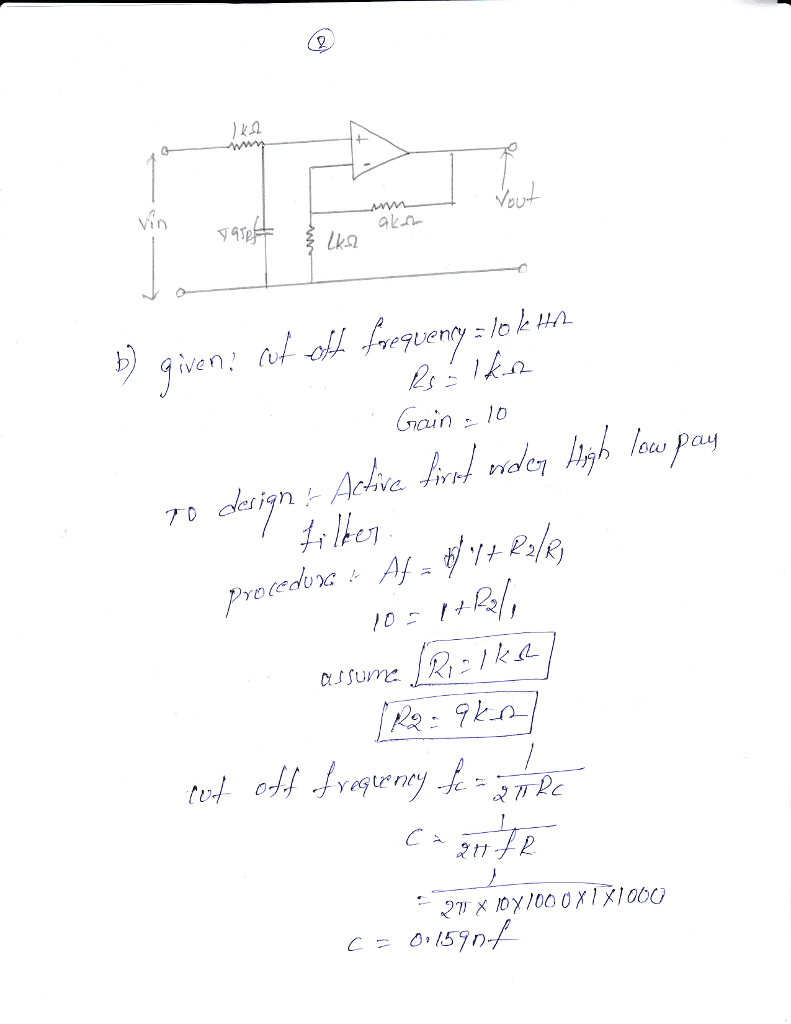 2
1kΩ
+
-
Vin
Vout
9kΩ
1kΩ
b) given: cut off frequency = 10kHz
Rs = 1kΩ
Gain = 10
TO design :- Active first order High low pass
filter.
procedure :- Af = 1 + R2/R1
10 = 1 + R2/1
assume R1 = 1kΩ
R2 = 9kΩ
cut off frequency fc = 1/2πRC
C = 1/2πfR
= 1/2π x 10 x 1000 x 1 x 1000
C = 0.159nf